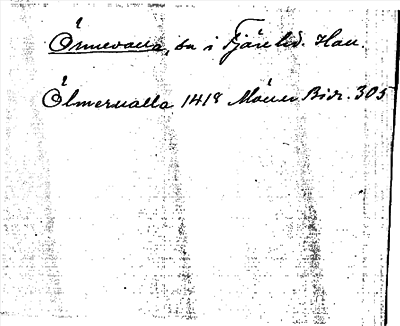 Örmevalla, sn i Fjäre hd. Hall.
Ölmerualla 1418 Mörner Bidr. 305